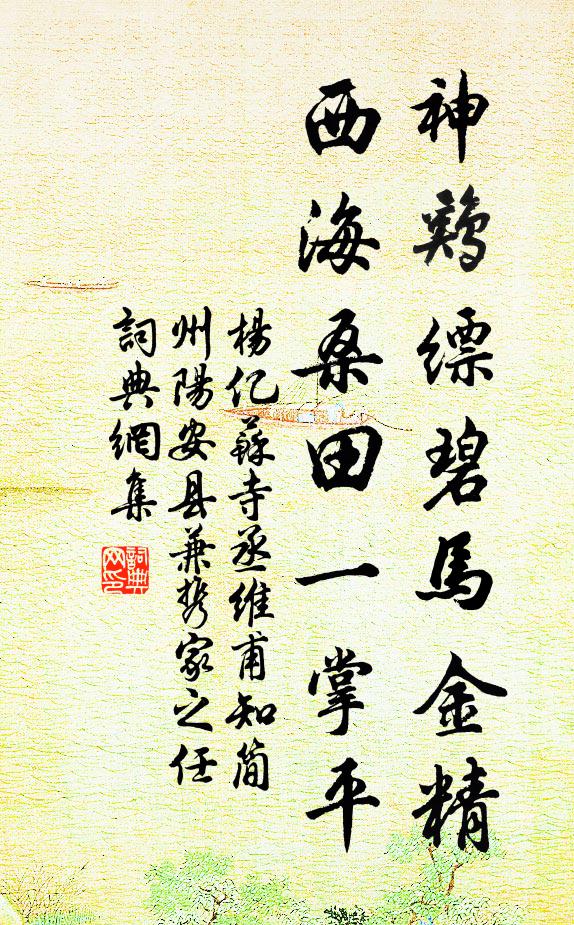 神鶏缥碧馬金精
西海桑田一掌平
楊亿蘇寺丞維甫知简
州陽安县兼携家之任
詞典網集
詞典
网印